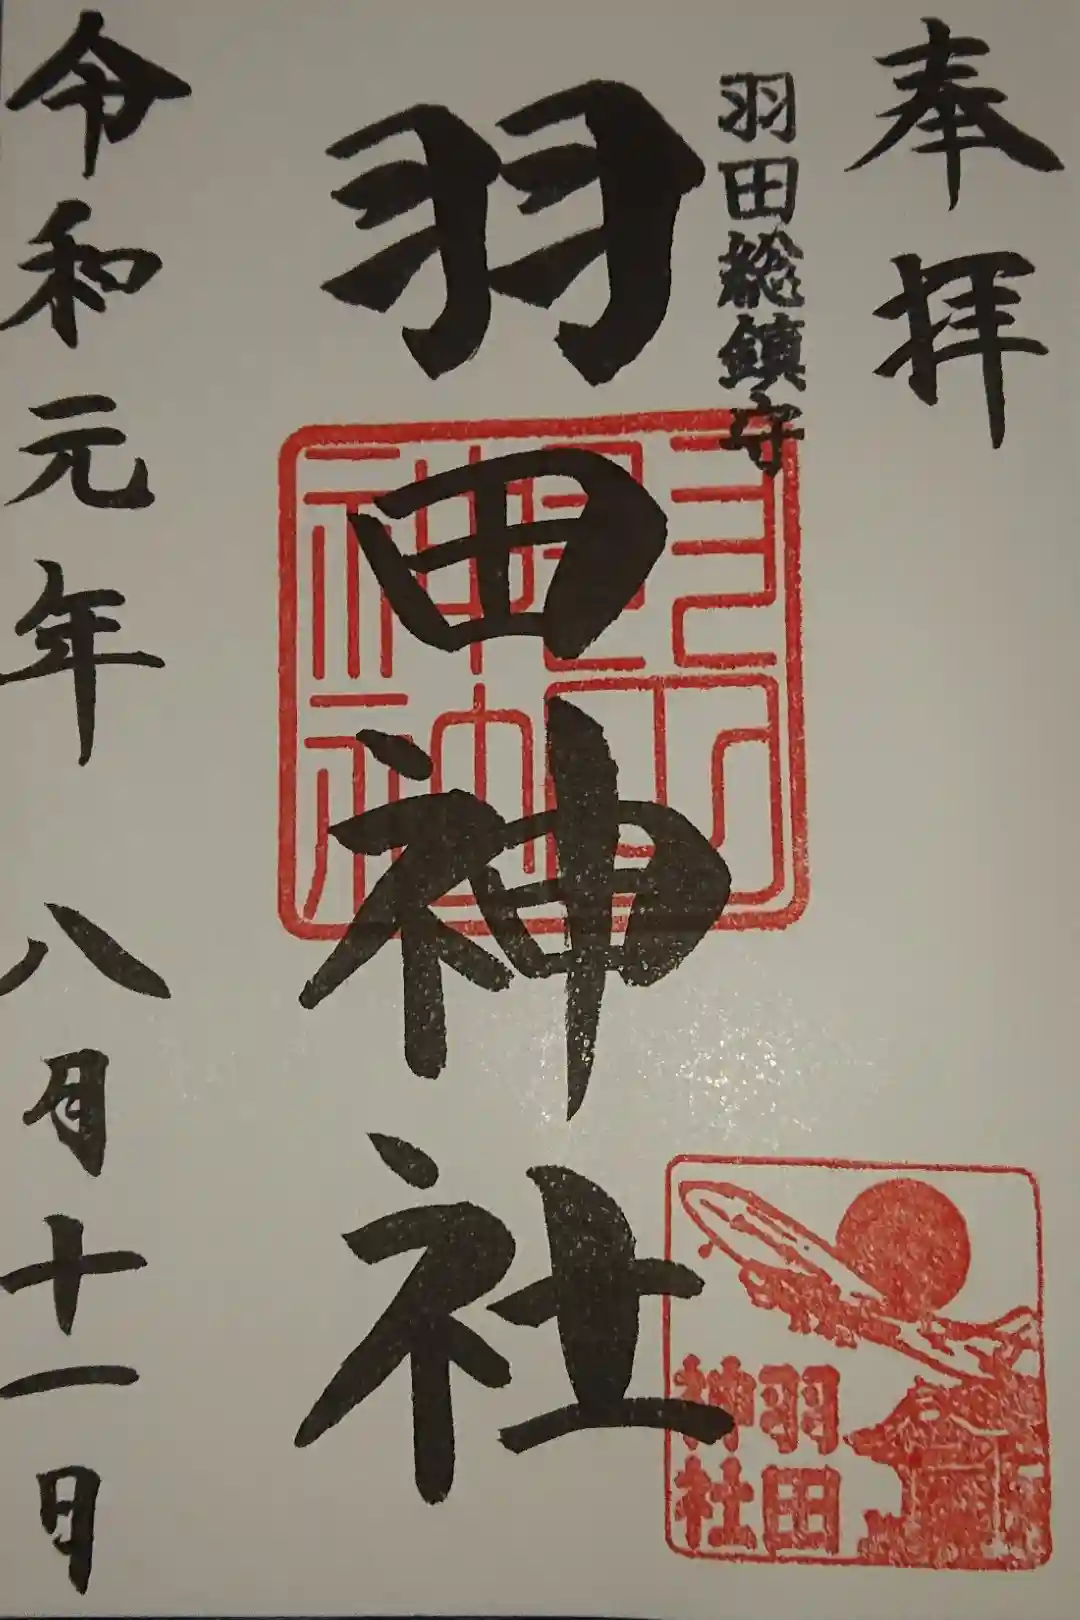 奉拝
羽田総鎮守
羽田神社
羽田
神社
令和元年 八月十一日